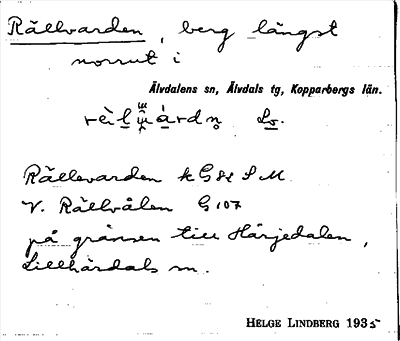 Rällvarden, berg längst
norrut i
Älvdalens sn, Älvdals tg, Kopparbergs län.
Lo.
Rällevarden k G82 S M
V. Rällvålen G 107
på gränsen till Härjedalen,
Lillhärdals sn.
HELGE LINDBERG 1935